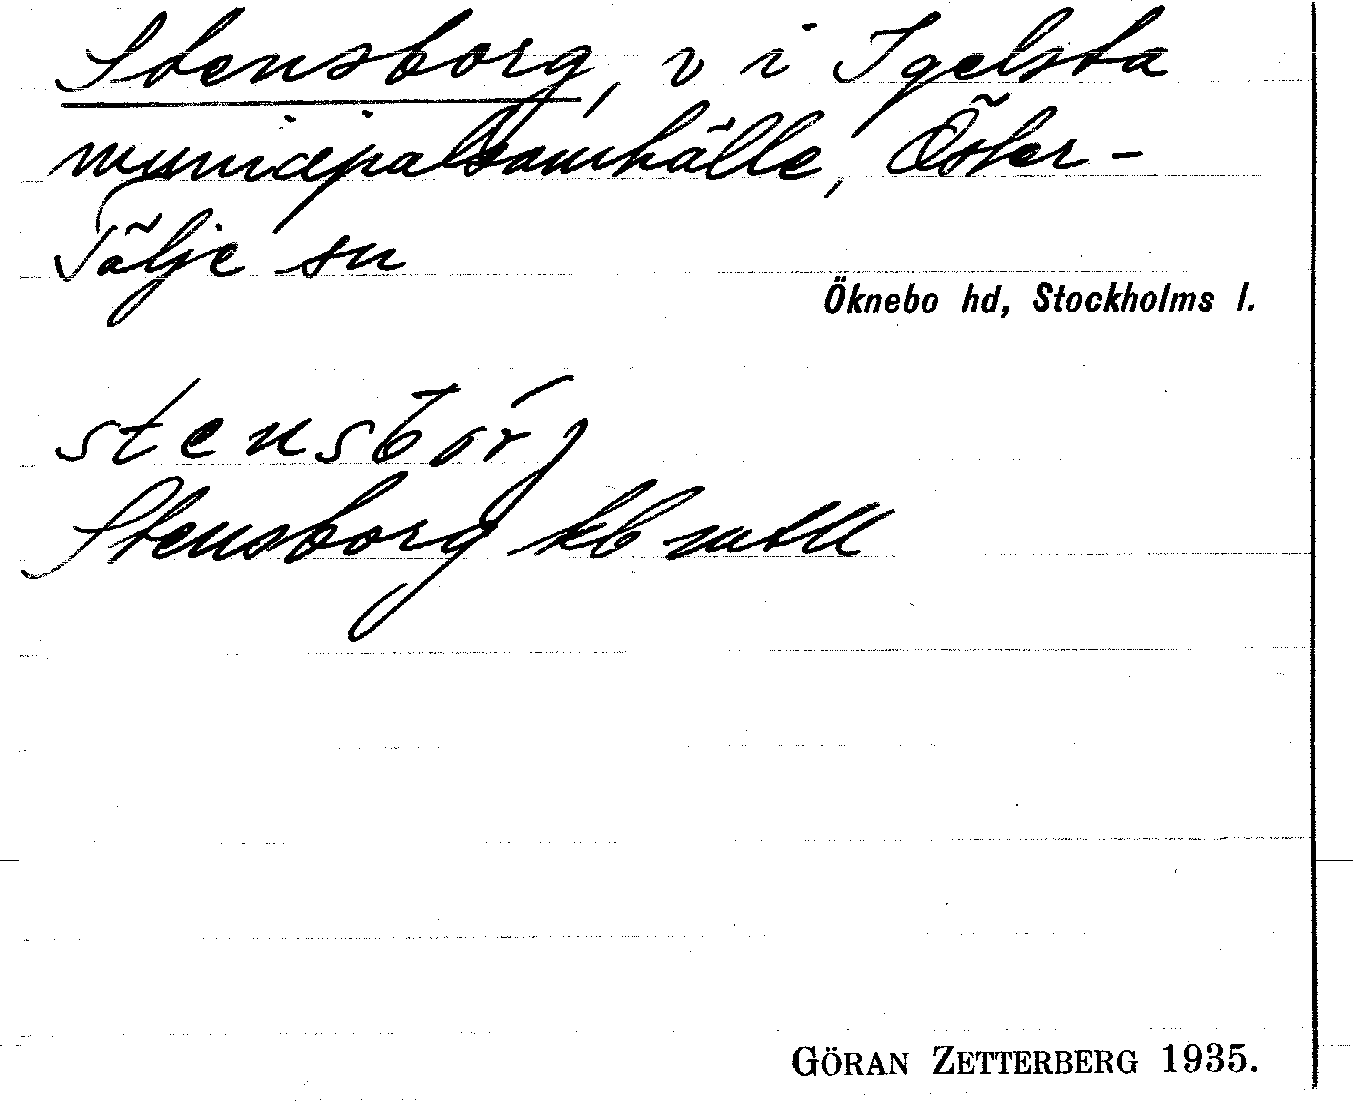 Stensborg, v i Igelsta
municipalsamhälle, Öster-
Tälje sn
Öknebo hd, Stockholms l.
stensbórj
Stensborg kb mtll
GÖRAN ZETTERBERG 1935.